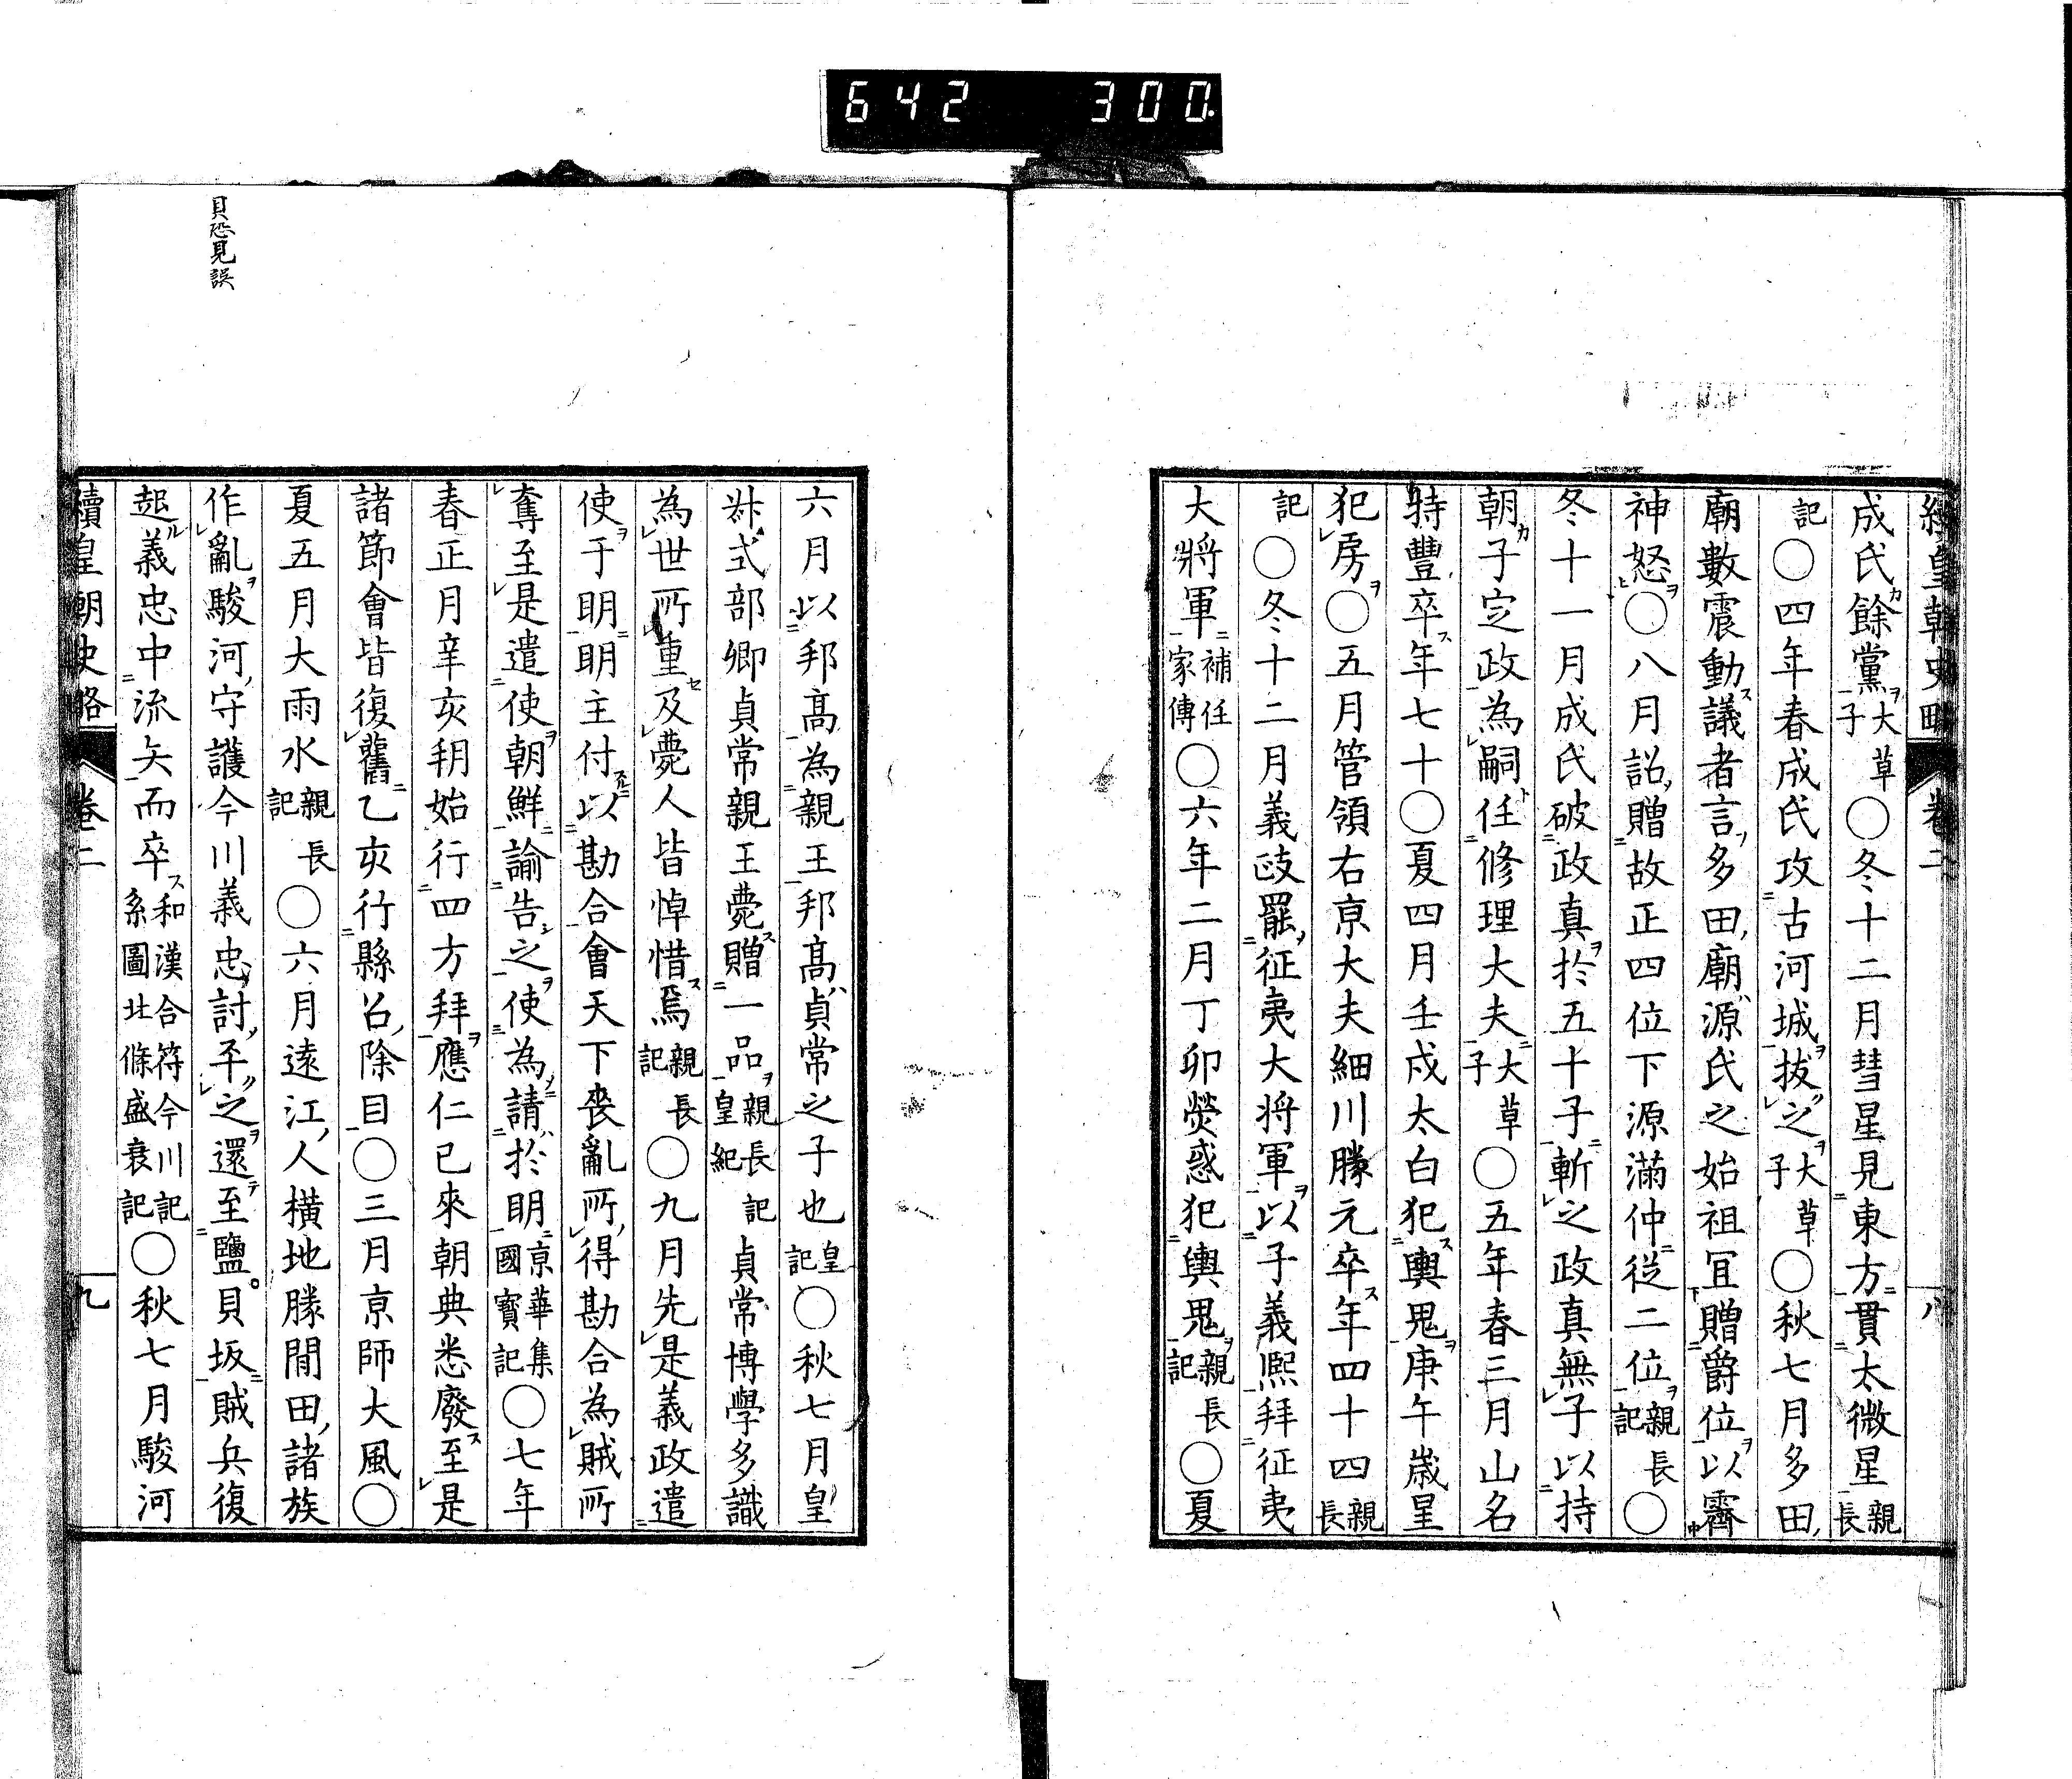 642 300
續皇朝史略 卷二 八
成氏餘黨大草子〇冬十二月彗星見東方貫太微星親長
記〇四年春成氏攻古河城拔之大草子〇秋七月多田
廟數震動議者言多田廟源氏之始祖宜贈爵位以霽
神怒〇八月詔贈故正四位下源滿仲從二位親長記〇
冬十一月成氏破政真於五十子斬之政真無子以持
朝子定政為嗣任修理大夫大草子〇五年春三月山名
持豐卒年七十〇夏四月壬戌太白犯輿鬼庚午歲星
犯房〇五月管領右京大夫細川勝元卒年四十四親長
記〇冬十二月義政罷征夷大將軍以子義熙拜征夷
大將軍補任家傳〇六年二月丁卯熒惑犯輿鬼親長記〇夏
六月以邦高為親王邦高貞常之子也皇記〇秋七月皇
叔式部卿貞常親王薨贈一品親長記皇紀貞常博學多識
為世所重及薨人皆悼惜焉親長記〇九月先是義政遣
使于明明主付以勘合會天下喪亂所得勘合為賊所
奪至是遣使朝鮮諭告之使為請於明京華集國寶記〇七年
春正月辛亥朔始行四方拜應仁已來朝典悉廢至是
諸節會皆復舊乙亥行縣召除目〇三月京師大風〇
夏五月大雨水親長記〇六月遠江人橫地勝閒田諸族
作亂駿河守護今川義忠討平之還至鹽貝坂賊兵復
起義忠中流矢而卒和漢合符今川記系圖北條盛衰記〇秋七月駿河
續皇朝史略 卷二 九
貝恐見誤